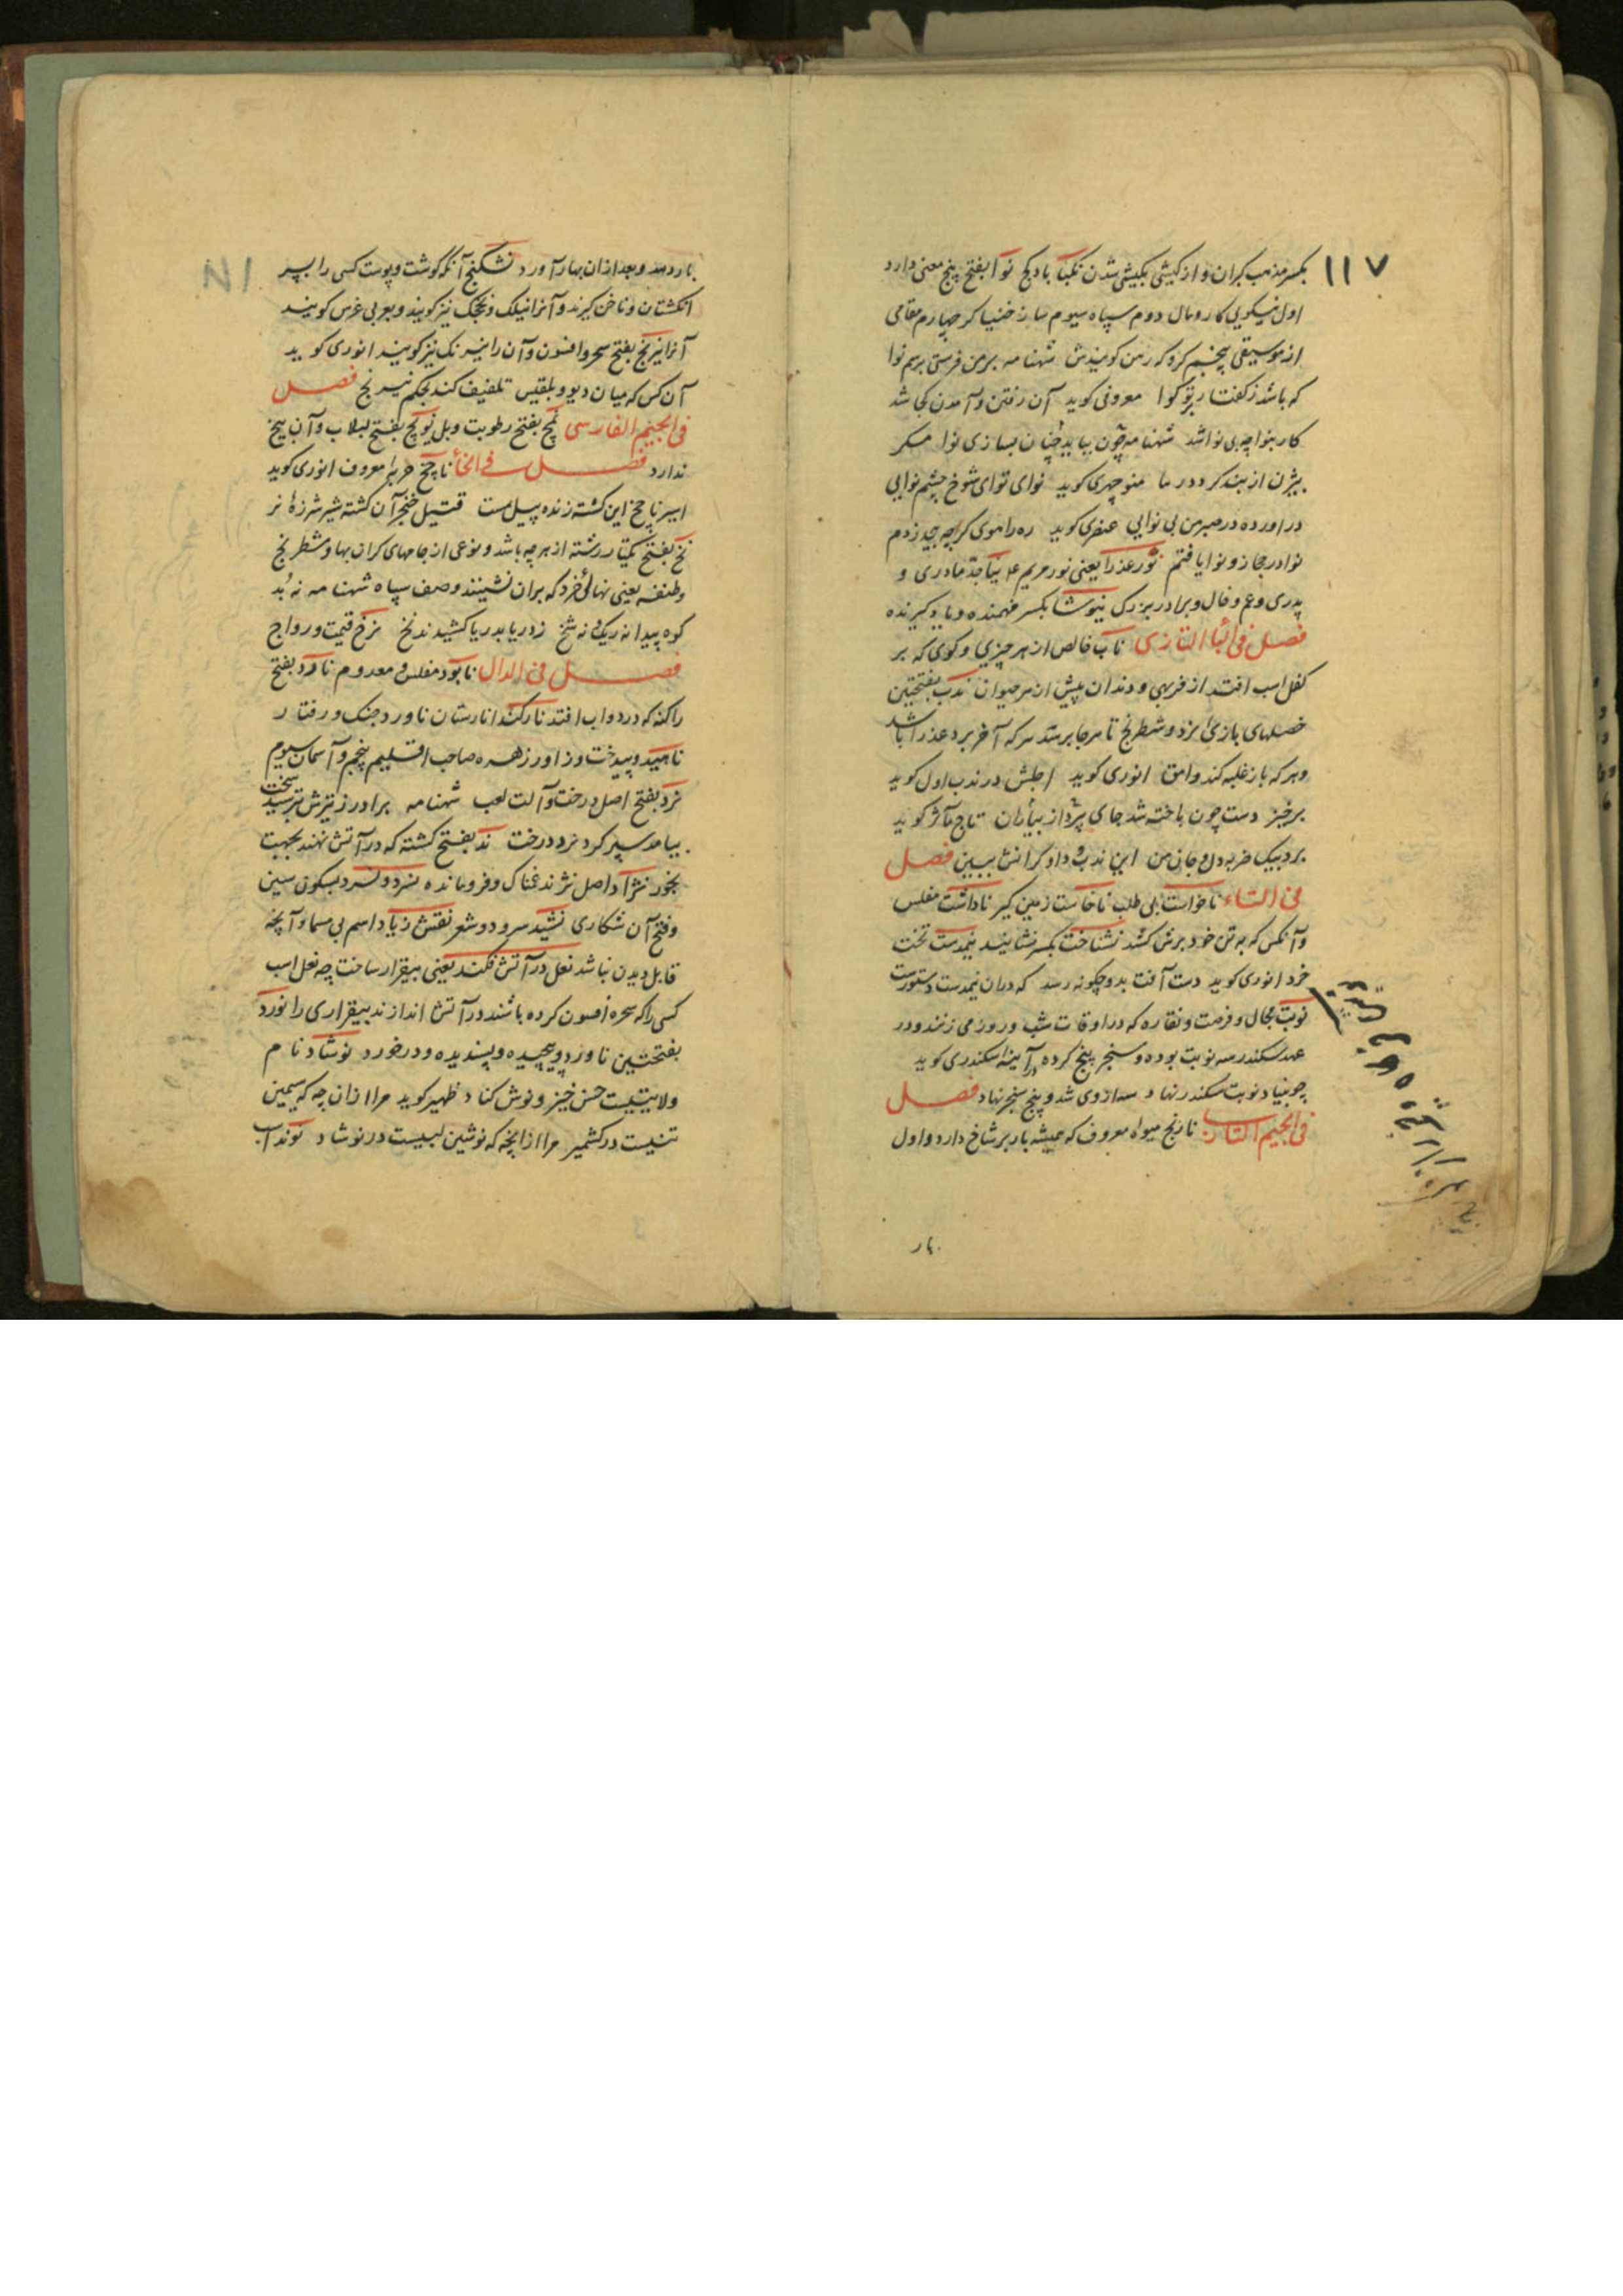 ١١٧
بکسر مذهب کبران و از کیشی بکیشی شدن نکبا باد کج نوا بفتح پنج معنی دارد
اول نیکویی کار و مال دوم سپاه سیوم ساز خنیاگر چهارم مقامی
از موسیقی پنجم کرو که رهن کویندش شهنامه بر من فرستی برسم نوا
که باشد ز گفتار بر تو کوا معروفی کوید آن رفتن و آمدن کجا شد
کار بنوا چه بی نوا شد شهنامه چون بیاید چنان بسازی نوا مکر
بیژن از بند کردد رها منوچهری کوید نوای توای شوخ چشم نوایی
در آورده در صبر من بی نوایی عنصری کوید ره راهوی کرچه جید زدم
نوا در حجاز و نوا یافتم نور عذرا یعنی نور مریم ع نیا جد مادری و
پدری و عم و خال و برادر بزرک نیوشا بکسر فهمنده و یاد کیرنده
فصل فی البا التازی ناب خالص از هر چیزی و کوی که بر
کفل اسب افتد از فربهی و دندان پیش از هر حیوان ندب بفتحتین
خصلهای بازی نرد و شطرنج تا هر جا برسد هر که آخر برد عذرا باشد
و هر که باز غلبه کند وامق انوری کوید اجلش در ندب اول کوید
برخیز دست چون باخته شد جای بپرداز بیاران تاج مآثر کوید
برد بیک ضربه دل و جان من این ندب و داو کرانش ببین فصل
فی التاء ناخواست بی طلب ناخاست زمین کیر ناداشت مفلس
و آنکس که به تن خود برش کشد نشاخت بکسر نشانید نیمدست تخت
خرد انوری کوید دست آفت بدو چکونه رسد که در ان نیمدست دستورست
نوبت مجال و فرصت و نقاره که در اوقات شب و روز می زنند و در
عهد سکندر سه نوبت بوده و سنجر پنج کرده در آئینه اسکندری کوید
چو بنیاد نوبت سکندر نهاد سه از وی شد و پنج سنجر نهاد فصل
فی الجیم التازی نارنج میوه معروف که همیشه بار بر شاخ دارد و اول
بار
بار دهد و بعد از ان بهار آورد نشکنج آنکه گوشت و پوست کسی را بسر
انکشتان و ناخن گیرند و آنرا نیلک و نخجک نیز کویند و بعربی غرس کویند
آنرا نیرنج بفتح سحر و افسون و آن را نیرنک نیز کویند انوری کوید
آن کس که میان دیو و بلقیس تلفیف کند بحکم نیرنج فصل
فی الجیم الفارسی نمچ بفتح رطوبت و بل نوکچ بفتح لبلاب و آن بیخ
ندارد فصل فی الخا ناچخ حربه معروف انوری کوید
اسیر ناچخ این کشته زنده پیل مست قتیل خنجر آن کشته شیر شرزه نر
نخ بفتح یکتا رشته از هر چه باشد و نوعی از جامهای کران بها و شطرنج
و طنفسه یعنی نهالی خرد که بران نشینند وصف سپاه شهنامه نه بد
کوه پیدا نه ریک و نه شخ ز دریا بدریا کشیدند نخ نرخ قیمت و رواج
فصل فی الدال نابود مفلس و معدوم نارد بفتح
را کنه که در دواب افتد نارکند انارستان ناورد جنک و رفتار
ناهید و بیدخت و زاور زهره صاحب اقلیم پنجم و آسمان سیوم
نرد بفتح اصل درخت و آلت لعب شهنامه برادر ز تیزش بترسید سخت
بیامد سپر کرد نرد درخت ند بفتح کشته که در آتش نهند بجهت
بخور نژاد اصل نژند غمناک و فرومانده نسرد و نسرد بسکون سین
و فتح آن شکاری نشید سرود و شعر نقش زیاد اسم بی مسما و آنچه
قابل دیدن نباشد نعل در آتش فکند یعنی بیقرار ساخت چه نعل اسب
کسی را که سحر و افسون کرده باشند در آتش اندازند بیقراری را نورد
بفتحتین ناورد و پیچیده و پسندیده و درخورد نوشاد نام
ولایتیست حسن خیز و نوش کناد ظهیر کوید مرا ازان چه که سیمین
تنیست در کشمیر مرا ازانچه که نوشین لبیست در نوشاد نوند اسب